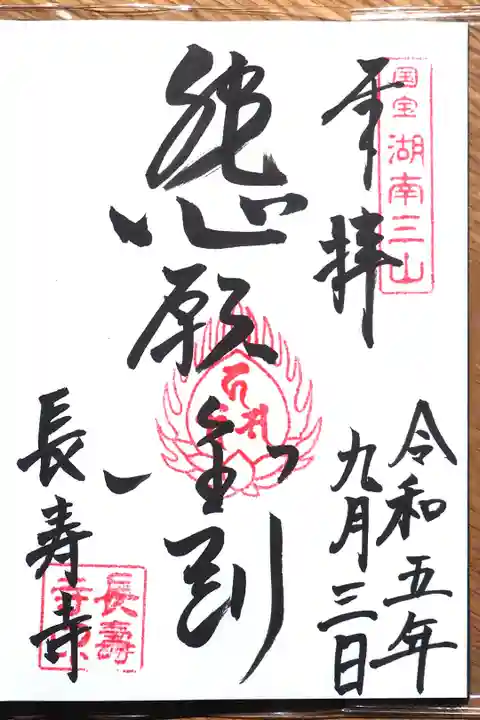 国宝 湖南三山
奉拝
令和五年
九月三日
悲願金剛
長寿寺
長壽
寺印